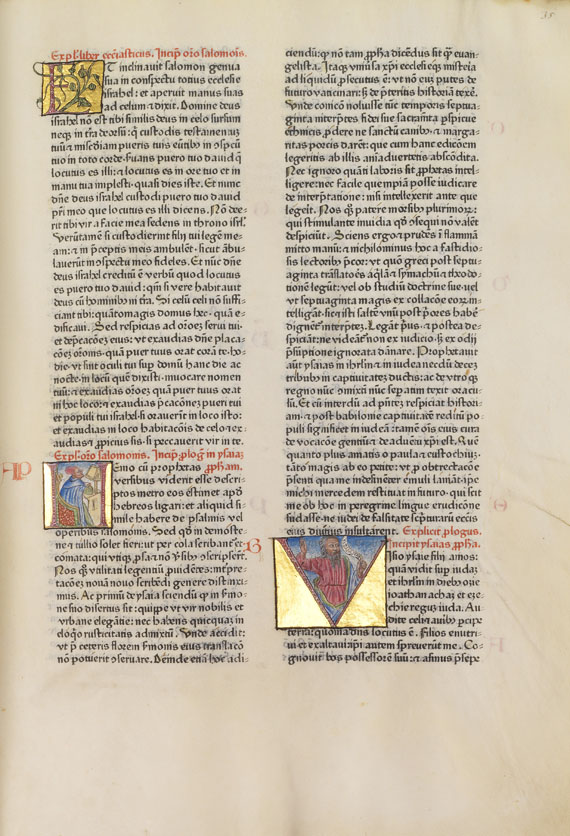 Expl. liber eccĩasticus. Incip̃ orõ salomõis.
ET inclinauit salomon genua
sua in conspectu totius ecclesie
israhel: et aperuit manus suas
ad celum ⁊ dixit. Domine deus
israhel nõ est tibi similis deus in celo sursum
neqȝ in tr̃a deorsũ: q̃ custodis testamentũ
tuũ ⁊ misc̃diam pueris tuis
tuo in toto corde.
locutus es illi: ⁊ locutus es in ore tuo et in
manu tua implesti: quasi dies iste. Et nunc
dñe deus israhel custodi puero tuo dauid
pr̃i meo que locutus es illi dicens. Nõ dee-
rit tibi vir a facie mea sedens in throno isrl̃.
Verũtamẽ si custodierint filij tui legẽ me-
am: ⁊ in p̃ceptis meis ambulẽt: sicut ãbu-
lauerũt in ꝯspectu meo fideles. Et nũc dñe
deus israhel creditũ ẽ verbũ quod locutus
es puero tuo dauid: qm̃ si vere habitauit
deus cũ hominibꝰ in tr̃a. Si celũ celi nõ suffi-
ciant tibi: quãtomagis domus hec: quã e-
dificaui. Sed respicias ad orõeȝ serui tui:
et dep̃cacõeȝ eius: vt exaudias dñe placa-
cõeȝ orõnis: quã puer tuus orat corã te ho-
die: vt sint oculi tui sup domũ hanc die ac
nocte: in locũ quẽ dixisti: inuocare nomen
tuũ: ⁊ exaudias orõeȝ quã puer tuus orat
in hoc loco: ⁊ exaudias p̃cacõneȝ pueri tui
et populi tui israhel: si orauerit in loco isto:
et exaudias in loco habitacõis de celo: ⁊ ex-
audias ⁊ propicius sis: si peccauerit vir in te.
Expl. orõ salomonis. Incip̃ plog̃ in ysaiã
p̃pham.
NEmo cũ prophetas
versibus viderit esse descri-
ptos metro eos estimet apð
hebreos ligari: et aliquid si-
mile habere de psalmis vel
operibus salomonis. Sed qð in demoste-
ne ⁊ tullio solet fieri: ut per cola scribant̃ et
comata: qui vtiqȝ p̃sa ⁊ nõ ṽsibꝰ cõscripsert̃.
Nos q̃ȝ vtilitati legentiũ p̃uidẽtes: inter̃pre-
tacõeȝ nouã nouo scribẽdi genere distinxi-
mus. Ac primũ de ysaia sciendũ q̃ in sermo-
ne suo disertus sit: quippe vt vir nobilis et
vrbane elegãtie: nec habens quicquaȝ in
eloq̃o rusticitatis admixtũ. Vnde accidit:
vt p̃ ceteris florem sermonis eius translacõ
nõ potuerit ꝯseruare. Deinde etiã hoc adi-
ciendũ: q̃ nõ tam p̃pha dicẽdus sit q̃ȝ euan-
gelista. Itaqȝ vniũsa xp̃i ecclesieqȝ misteria
ad liquidũ p̃secutus ẽ: vt nõ eũ putes de
futuro vaticinari: sȝ de p̃teritis historiã texẽ.
Vnde conicio noluisse tũc temporis septua-
ginta interp̃tes fidei sue sacramẽta p̃spicue
ethnicis p̃dere: ne sanctũ canibꝰ ⁊ marga-
ritas porcis darẽt: que cum hanc edicõem
legeritis ab illis aniaduertetis abscõdita.
Nec ignoro quãti laboris sit p̃phetas intel-
ligere: nec facile quempiã posse iudicare
de interp̃tatione: nisi intellexerit ante que
legeit. Nos q̃ȝ patere morsibꝰ plurimoꝝ:
qui stimulante inuidia qð ꝯsequi nõ valẽt
despiciũt. Sciens ergo ⁊ prudẽs ĩ flammã
mitto manũ: ⁊ nichilominus hoc a fastidio-
sis lectoribꝰ p̃cor: vt quõ greci post septu-
aginta trãslatoẽs aq̃lã ⁊ symachũ ⁊ theodo-
tionẽ legũt: vel ob studiũ doctrine sue: vel
vt septuaginta magis ex collacõe eoꝝ in-
telligãt: sic ⁊ isti saltẽ vnũ post p̃ores habẽ
dignẽt̃ interp̃teȝ. Legãt p̃us: ⁊ postea de-
spiciãt: ne videãt̃ non ex iudicio: sȝ ex odij
p̃sũptione ignorata dãnare. Prophetauit
aut̃ ysaias in ihrl̃m ⁊ in iudea necdũ decẽ
tribubꝰ in captiuitateȝ ductis: ac de vtroqȝ
regno nũc ꝯmixtũ nũc sep̃atim texit oracu-
lũ. Et cũ interdũ ad p̃sentẽ respiciat histori-
am: ⁊ post babilonie captiuitatẽ reditũ po-
puli significet in iudeã: tamẽ oĩs eius cura
de vocacõe gentiũ ⁊ de aduẽtu xp̃i est. Quẽ
quanto plus amatis o paula ⁊ eustochiũ:
tãto magis ab eo petite: vt p̃ obtrectacõe
p̃senti qua me indesinẽter emuli laniãt: ip̃e
michi mercedem restituat in futuro: qui scit
me ob hoc in peregrine lingue erudicõne
sudasse: ne iudei de falsitate scripturarũ eccl̃is
eius diutius insultarent. Explicit p̃logus.
Incipit ysaias p̃pha.
VIsio ysaie filij amos:
quã vidit sup iudaȝ
et ihrl̃m in diebꝰ oȝie
ioathan achaȝ et eȝe-
chie regis iuda. Au-
dite celi ⁊ auribꝰ p̃cipe
terra: quoniã dñs locutus ẽ. Filios enutri-
ui et exaltaui: ip̃i autem spreuerũt me. Co-
gnouit bos possessorẽ suũ: ⁊ asinus p̃sepe